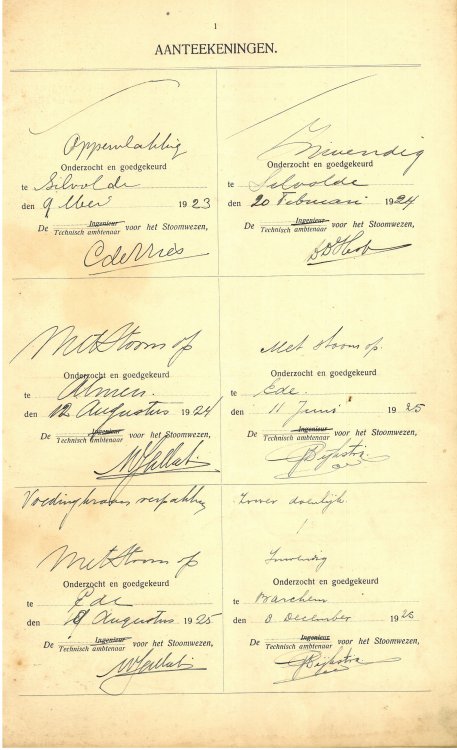 1
AANTEEKENINGEN.
Oppervlakkig
Onderzocht en goedgekeurd
te Silvolde
den 9 Mei 1923
De Ingenieur
Technisch ambtenaar voor het Stoomwezen,
C de Vries
Inwendig
Onderzocht en goedgekeurd
te Silvolde
den 20 Februari 1924
De Ingenieur
Technisch ambtenaar voor het Stoomwezen,
Met Stoom op
Onderzocht en goedgekeurd
te Almen
den 12 Augustus 1924
De Ingenieur
Technisch ambtenaar voor het Stoomwezen,
Met stoom op.
Onderzocht en goedgekeurd
te Ede.
den 11 Juni 1925
De Ingenieur
Technisch ambtenaar voor het Stoomwezen,
Dijkstra
Voedingkraan verpakken
Met Stoom op
Onderzocht en goedgekeurd
te Ede
den Augustus 1925
De Ingenieur
Technisch ambtenaar voor het Stoomwezen,
Zoover doenlijk
Inwendig
Onderzocht en goedgekeurd
te Barchem
den 8 December 1926
De Ingenieur
Technisch ambtenaar voor het Stoomwezen,
Dijkstra